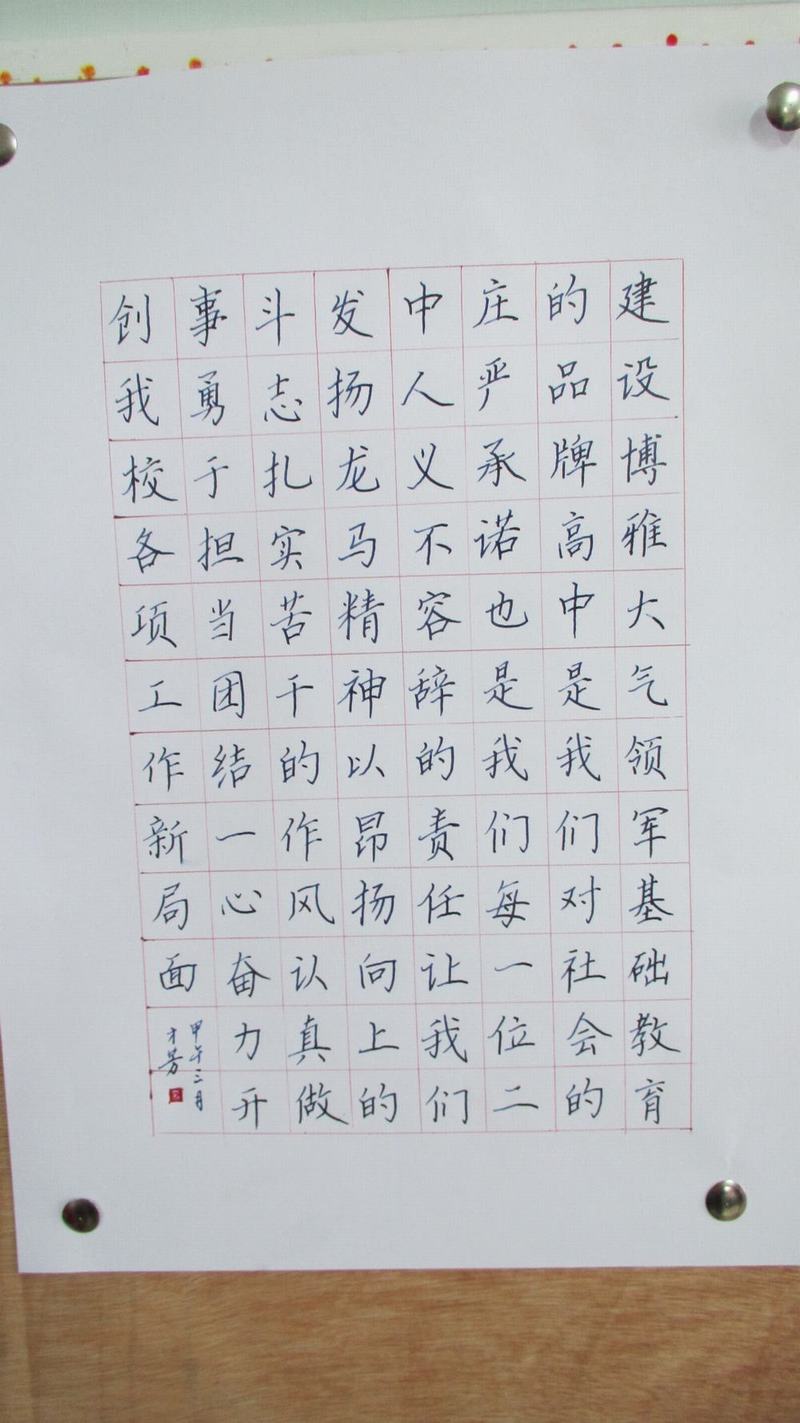 建设博雅大气领军基础教育
的品牌高中是我们对社会的
庄严承诺也是我们每一位二
中人义不容辞的责任让我们
发扬龙马精神以昂扬向上的
斗志扎实苦干的作风认真做
事勇于担当团结一心奋力开
创我校各项工作新局面
甲午三月
才芳